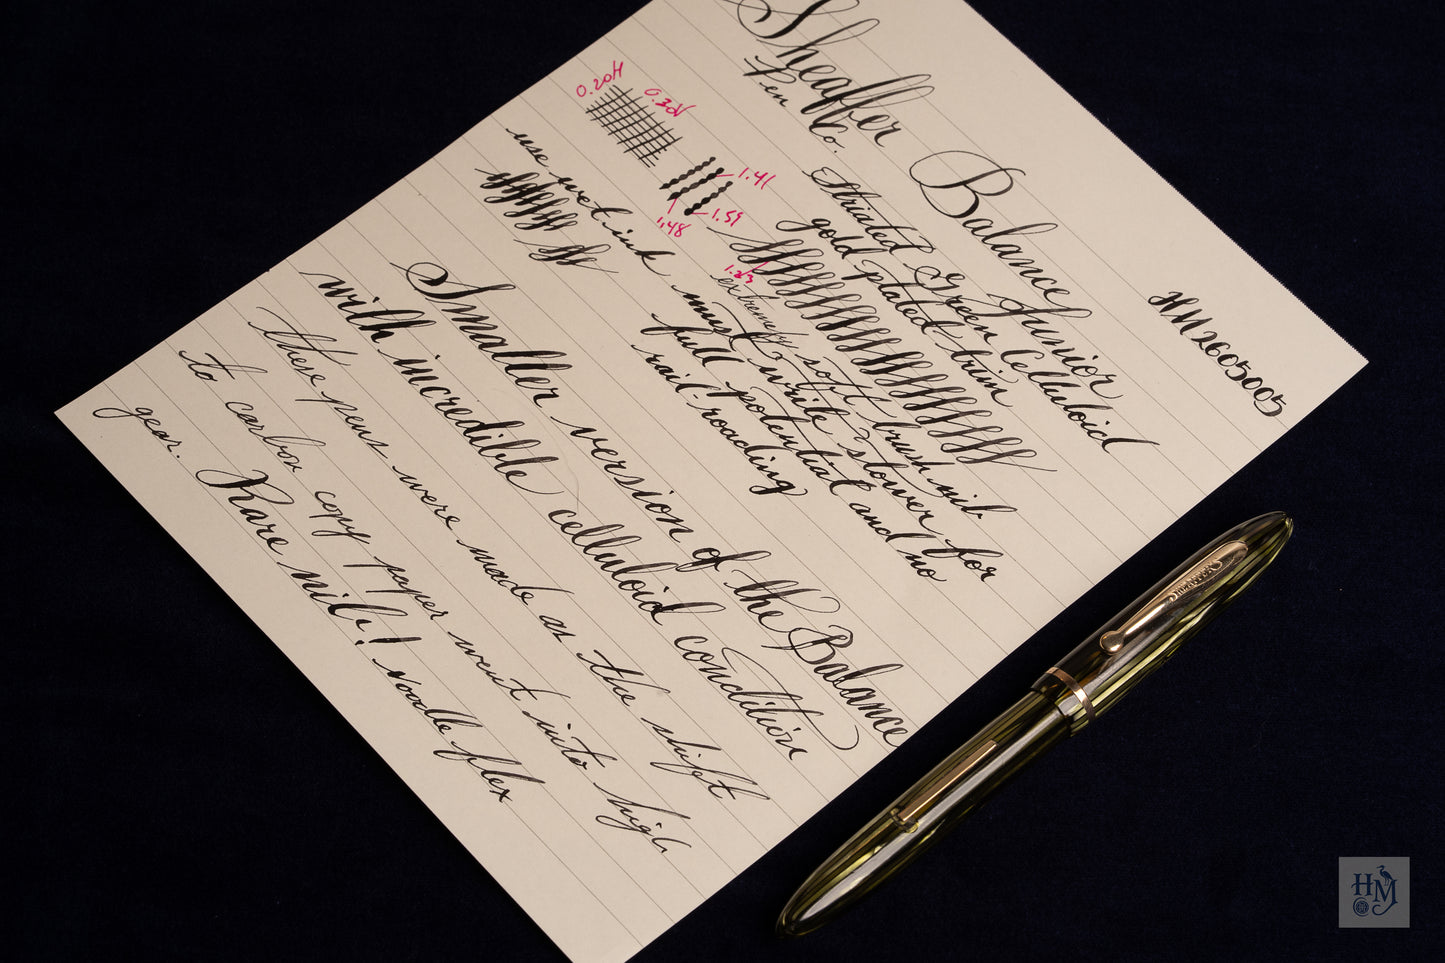 Sheaffer Balance Junior
Pen Co.
HM2605005
Striated Green Celluloid
gold plated trim
0.20H
0.30V
1.41
1.48
1.59
1.23
use wet ink
extremely soft brush nib
must write slower for
full potential and no
rail-roading
Smaller version of the Balance
with incredible celluloid condition
these pens were made as the shift
to carbon copy paper went into high
gear. Rare nib! noodle flex
SHEAFFER'S
HM